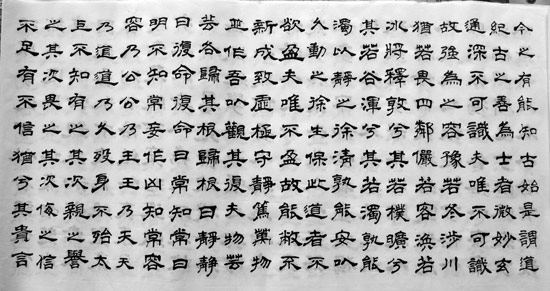 今之有能知古始是謂道
紀古之善為士者微妙玄
通深不可識夫唯不可識
故強為之容豫若冬涉川
猶若畏四鄰儼若容渙若
冰將釋敦兮其若樸曠兮
其若谷渾兮其若濁孰能
濁以靜之徐清孰能安以
久動之徐生保此道者不
欲盈夫唯不盈故能敝不
新成致虛極守靜篤萬物
並作吾以觀其復夫物芸
芸各歸其根歸根曰靜靜
曰復命復命曰常知常曰
明不知常妄作凶知常容
容乃公公乃王王乃天天
乃道道乃久歿身不殆太
不知有之其次親之譽
之其次畏之其次侮之信
不足有不信猶兮其貴言